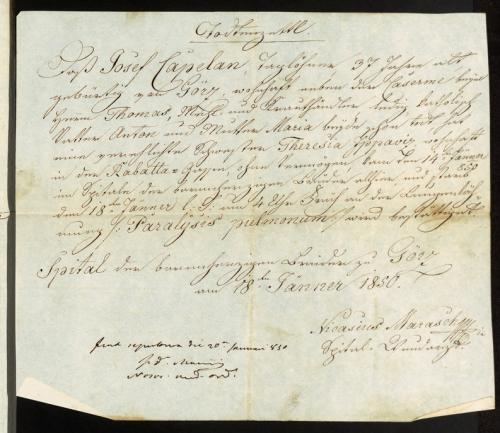 Todtenzettl.
Daß Josef Capelan, Taglöhner 37 Jahre alt
gebürtig von Görz, wohnhaft neben der Caserme beym
Herrn Thomas, Mehl und Krauthändler ledig katholisch
Vatter Anton und Mutter Maria beyde schon todt hat
eine verehlichte Schwester Theresia wohnhaft
in der Rabatta-Gassen, ohne Vermögen kam den 14ten Jänner
im Spitale der barmherzigen Brüder allhier und starb
den 18ten Jänner l. J. um 4 Uhr Früh an der Lungenläh-
mung /: Paralysis pulmonum, wird bestättiget.
Spital der barmherzigen Brüder zu Görz
am 18ten Jänner 1850.
Nicasius Maraschy
Spital-Wundarzt.
die 20ma Januari 850